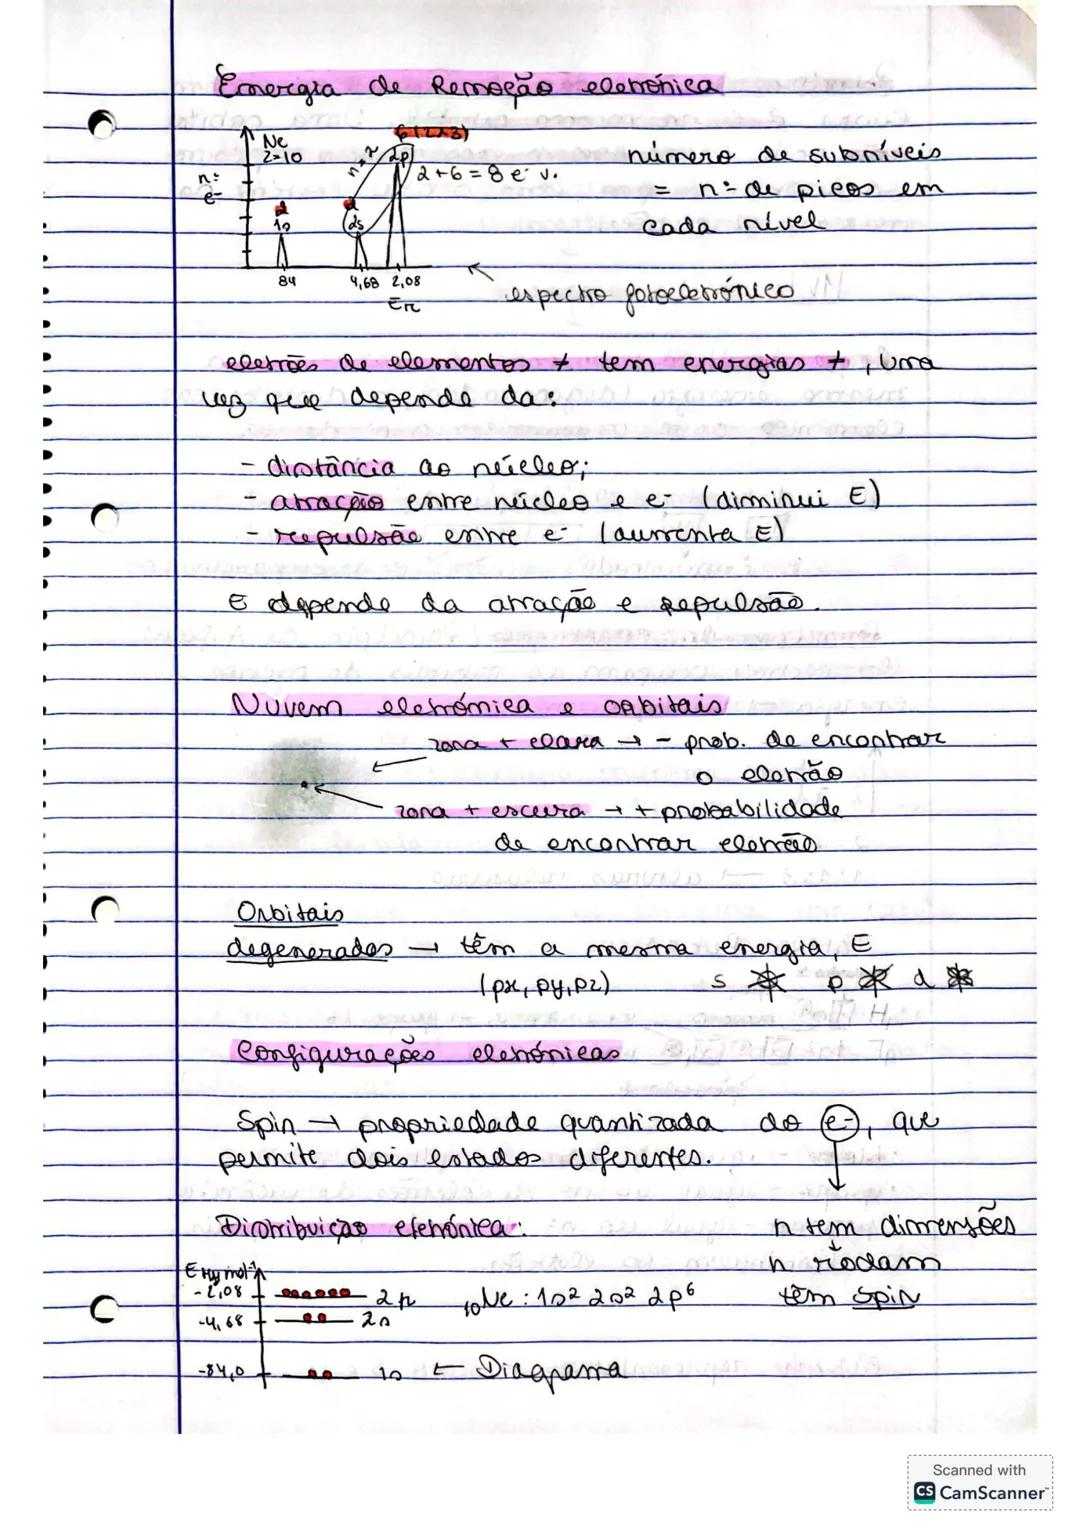 Energia de Remoção eletrónica
6 (2x3)
Ne
Z=10
n=2
2p
2+6 = 8 e⁻ v.
nº
e⁻
2
1s
2
2s
84
4,68
2,08
Er
número de subníveis
= nº de picos em
cada nível
espectro fotoeletrónico
eletrões de elementos ≠ tem energias ≠, uma
vez que depende da:
- distância ao núcleo;
- atração entre núcleo e e⁻ (diminui E)
- repulsão entre e⁻ (aumenta E)
E depende da atração e repulsão.
Nuvem eletrónica e orbitais
zona + clara → - prob. de encontrar
o eletrão
zona + escura → + probabilidade
de encontrar eletrão
Orbitais
degeneradas → têm a mesma energia, E
(px, py, pz)
s p d
Configurações eletrónicas
Spin → propriedade quantizada do e⁻, que
permite dois estados diferentes.
Distribuição eletrónica:
n tem dimensões
n rodam
têm spin
E mol⁻¹
-2,08
2p
-4,68
2s
₁₀Ne : 1s² 2s² 2p⁶
-84,0
1s ← Diagrama
Scanned with
CS CamScanner